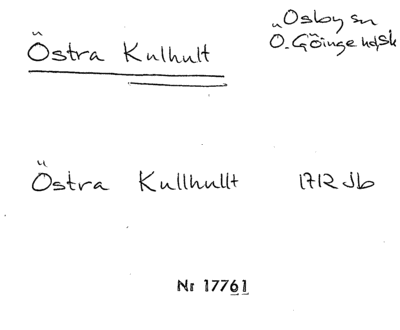 Östra Kulhult
Osby sn
Ö. Göinge hdsk
Östra Kullhullt 1712 Jb
Nr 17761